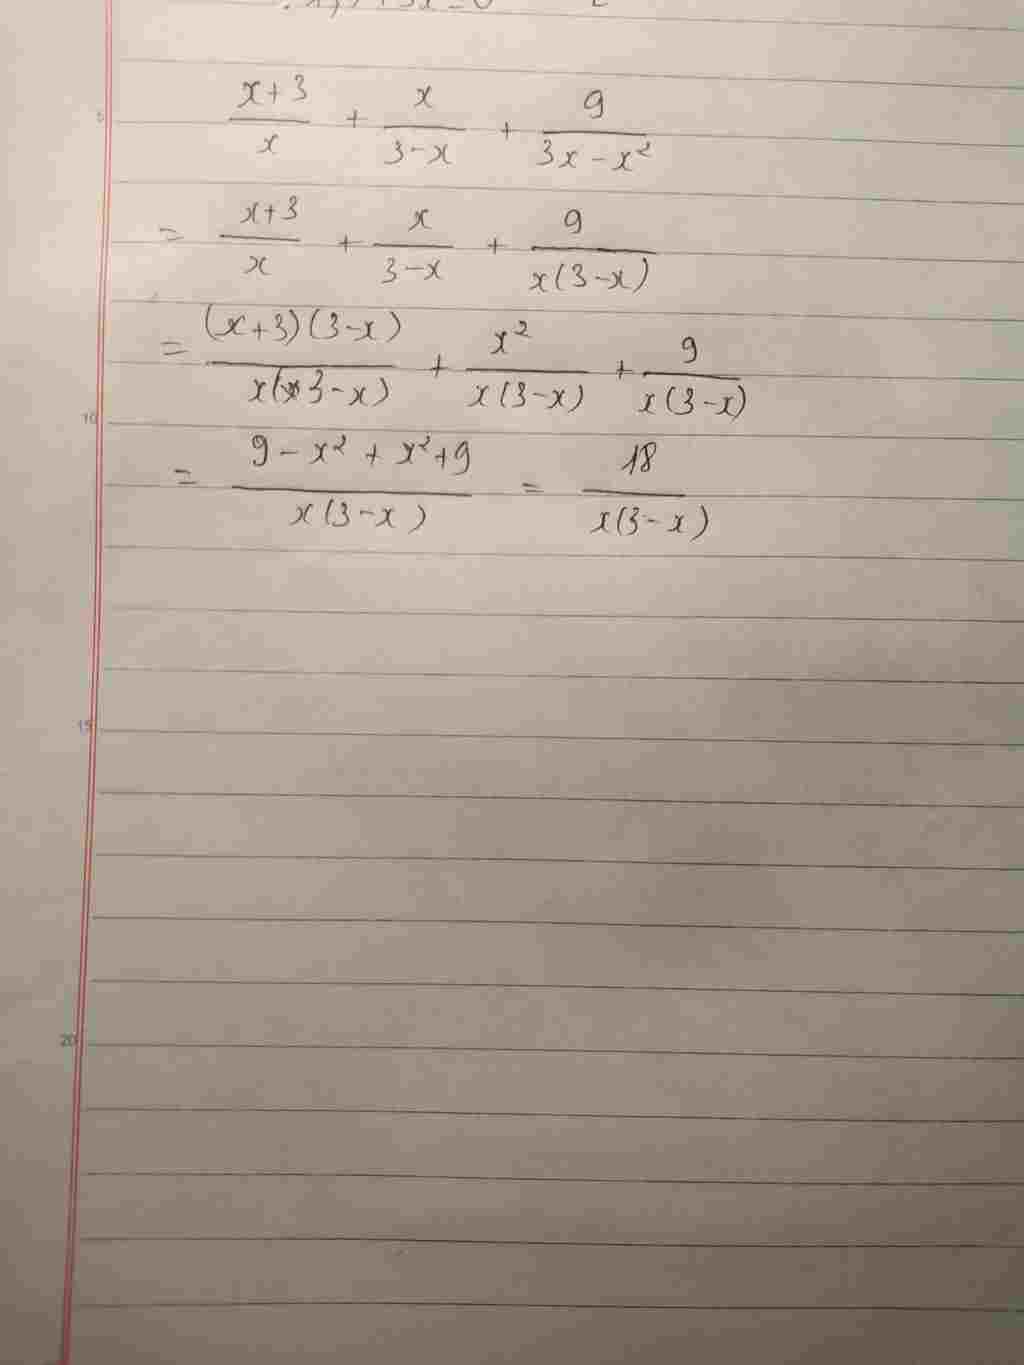 (x+3)/x + x/(3-x) + 9/(3x-x²)
= (x+3)/x + x/(3-x) + 9/(x(3-x))
= (x+3)(3-x)/(x(3-x)) + x²/(x(3-x)) + 9/(x(3-x))
= (9-x²+x²+9)/(x(3-x)) = 18/(x(3-x))
10
15
20